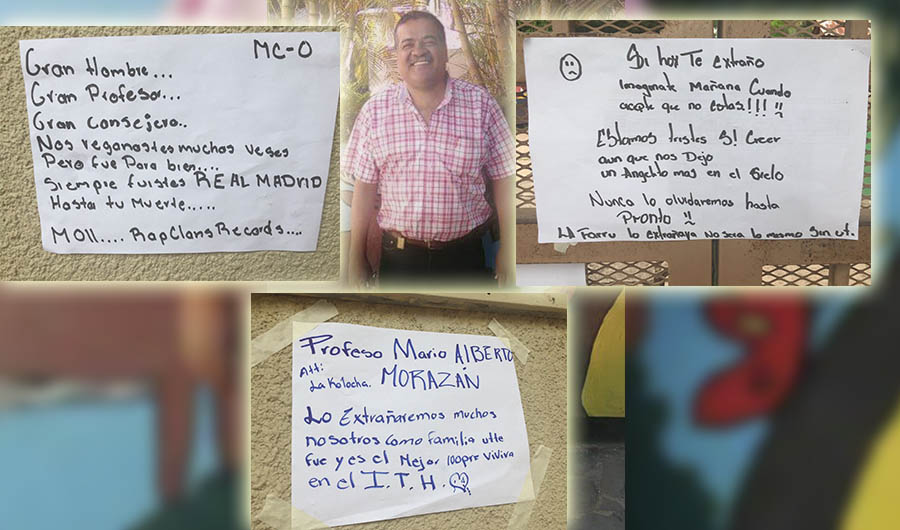 MC-O
Gran Hombre...
Gran Profesor...
Gran Consejero..
Nos reganastes muchos veses
Pero fue Para bien....
Siempre fuistes REAL MADRID
Hasta tu Muerte.....
MOll.... RapClans Records....
Si hoy Te extraño
Imaginate Mañana Cuando
acepte que no estas!!!!
Estamos tristes Si Creer
aun que nos Dejo
un Angelito mas en el Sielo
Nunca lo olvidaremos hasta
Pronto !!
LA Farru lo extrañara No sera lo mismo Sin ut.
Profeso Mario AlBERTO
MORAZÁN
Att:
La Kolocha.
Lo Extrañaremos muchos
nosotros Como familia utte
fue y es el Mejor 100pre ViVira
en el I.T.H.